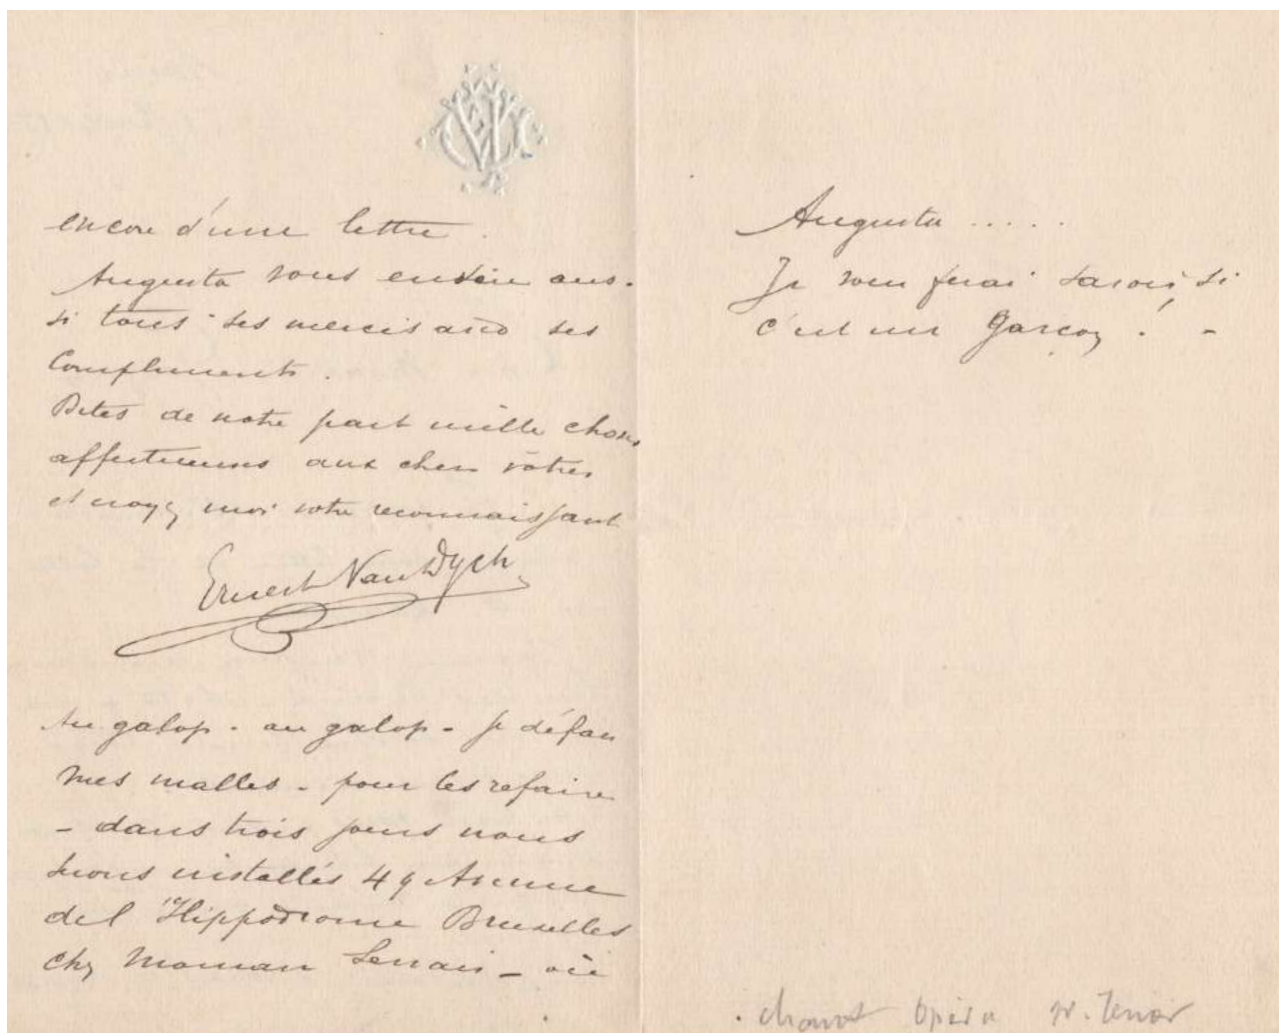 encore d'une lettre.
Augusta vous envoie aus-
si tous ses mercis avec ses
Compliments.
Dites de notre part mille choses
affectueuses aux chers vôtres
et croyez moi votre reconnaissant
Ernest Van Dyck
Au galop - au galop - Je défais
mes malles - pour les refaire
- dans trois jours nous
serons installés 49 Avenue
de l'Hippodrome Bruxelles
chez Maman Servais - où
Augusta .....
Je vous ferai savoir, si
c'est un Garçon ! -
Opéra